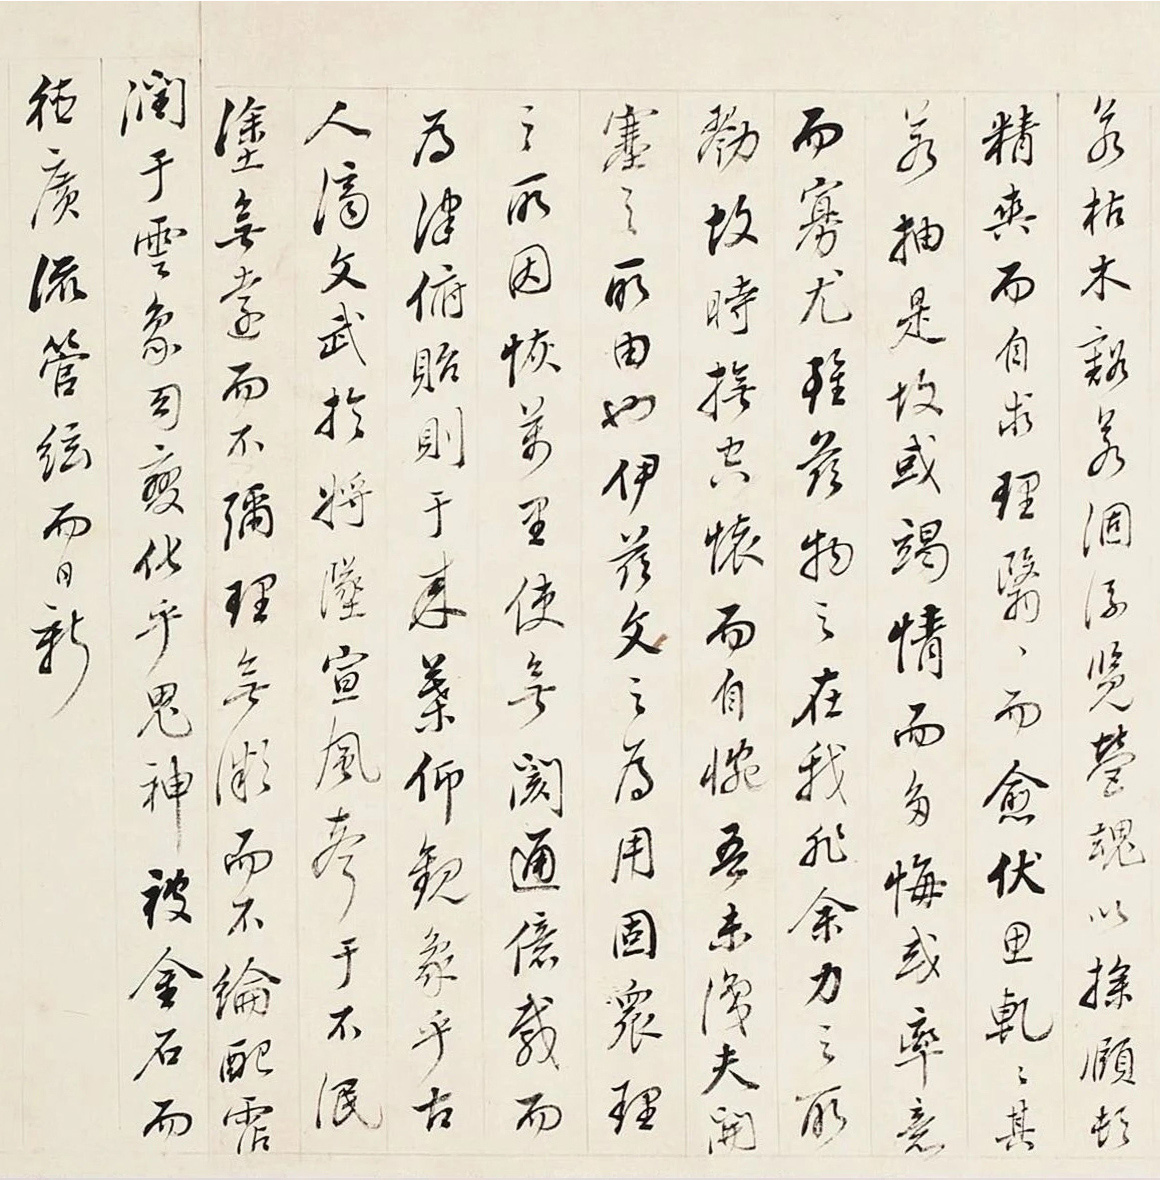 若枯木豁若涸流覽營魂以探頤頓
精爽而自求理翳〻而愈伏思軋〻其
若抽是故或竭情而多悔或率意
而寡尤雖茲物之在我非余力之所
勠故時撫空懷而自惋吾未識夫開
塞之所由也伊茲文之為用固眾理
之所因恢萬里使無閡通億載而
為津俯貽則于來葉仰觀象乎古
人濟文武於將墜宣風聲于不泯
塗無遠而不彌理無微而不綸配霑
潤于雲象思變化乎鬼神被金石而
德廣流管絃而日新